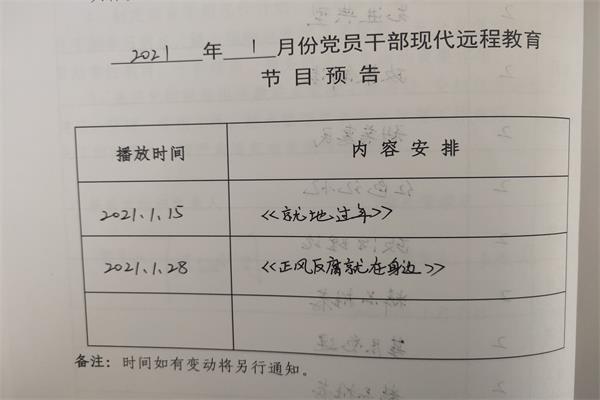 2021年1月份党员干部现代远程教育
节目预告
播放时间 内容安排
2021.1.15 《就地过年》
2021.1.28 《正风反腐就在身边》
备注：时间如有变动将另行通知。